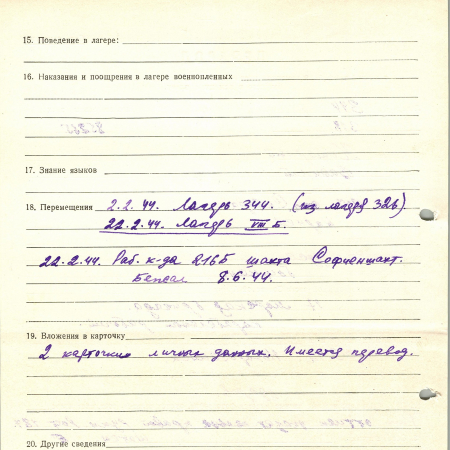 15. Поведение в лагере:
16. Наказания и поощрения в лагере военнопленных
17. Знание языков
18. Перемещения 2.2.44. Лагерь 344. (из лагеря 326)
22.2.44. Лагерь VIII Б.
22.2.44. Раб. к-да 216Б шахта Софиеншахт.
8.6.44.
19. Вложения в карточку
2 карточки личных данных. Имеется перевод.
20. Другие сведения